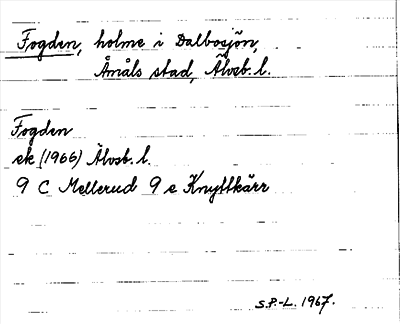 Fogden, holme i Dalbosjön,
Åmåls stad, Älvsb. l.
Fogden
ek (1966) Älvsb. l.
9 C Mellerud 9 e Knyttkärr
S.P.-L. 1967.